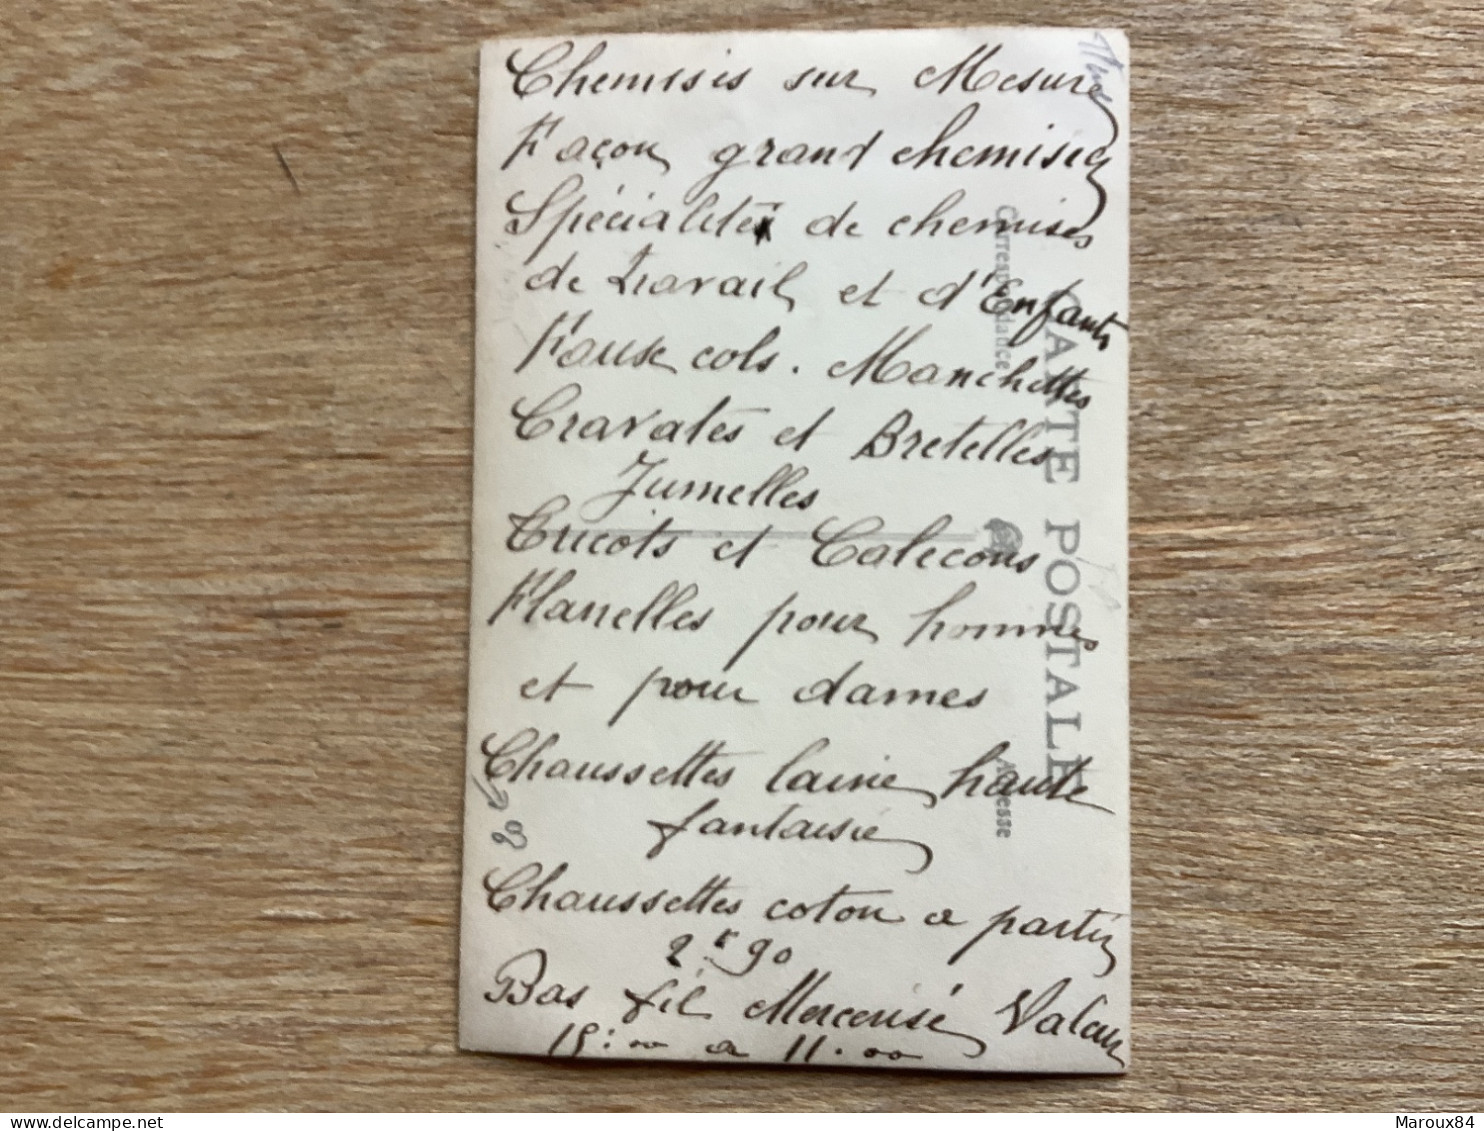 Chemisis sur Mesure
Façon grant chemisier
Spécialités de chemises
de travail et d'Enfants
Fause cols. Manchettes
Cravates et Bretelles
Jumelles
Tricots et Calecons
Flanelles pour hommes
et pour dames
Chaussettes laine haute
fantaisie
Chaussettes coton a partir
2 f 90
Bas fil Mercerisé Valeur
15.00 a 11.00
CARTE POSTALE
Correspondance
Adresse
Maroux84